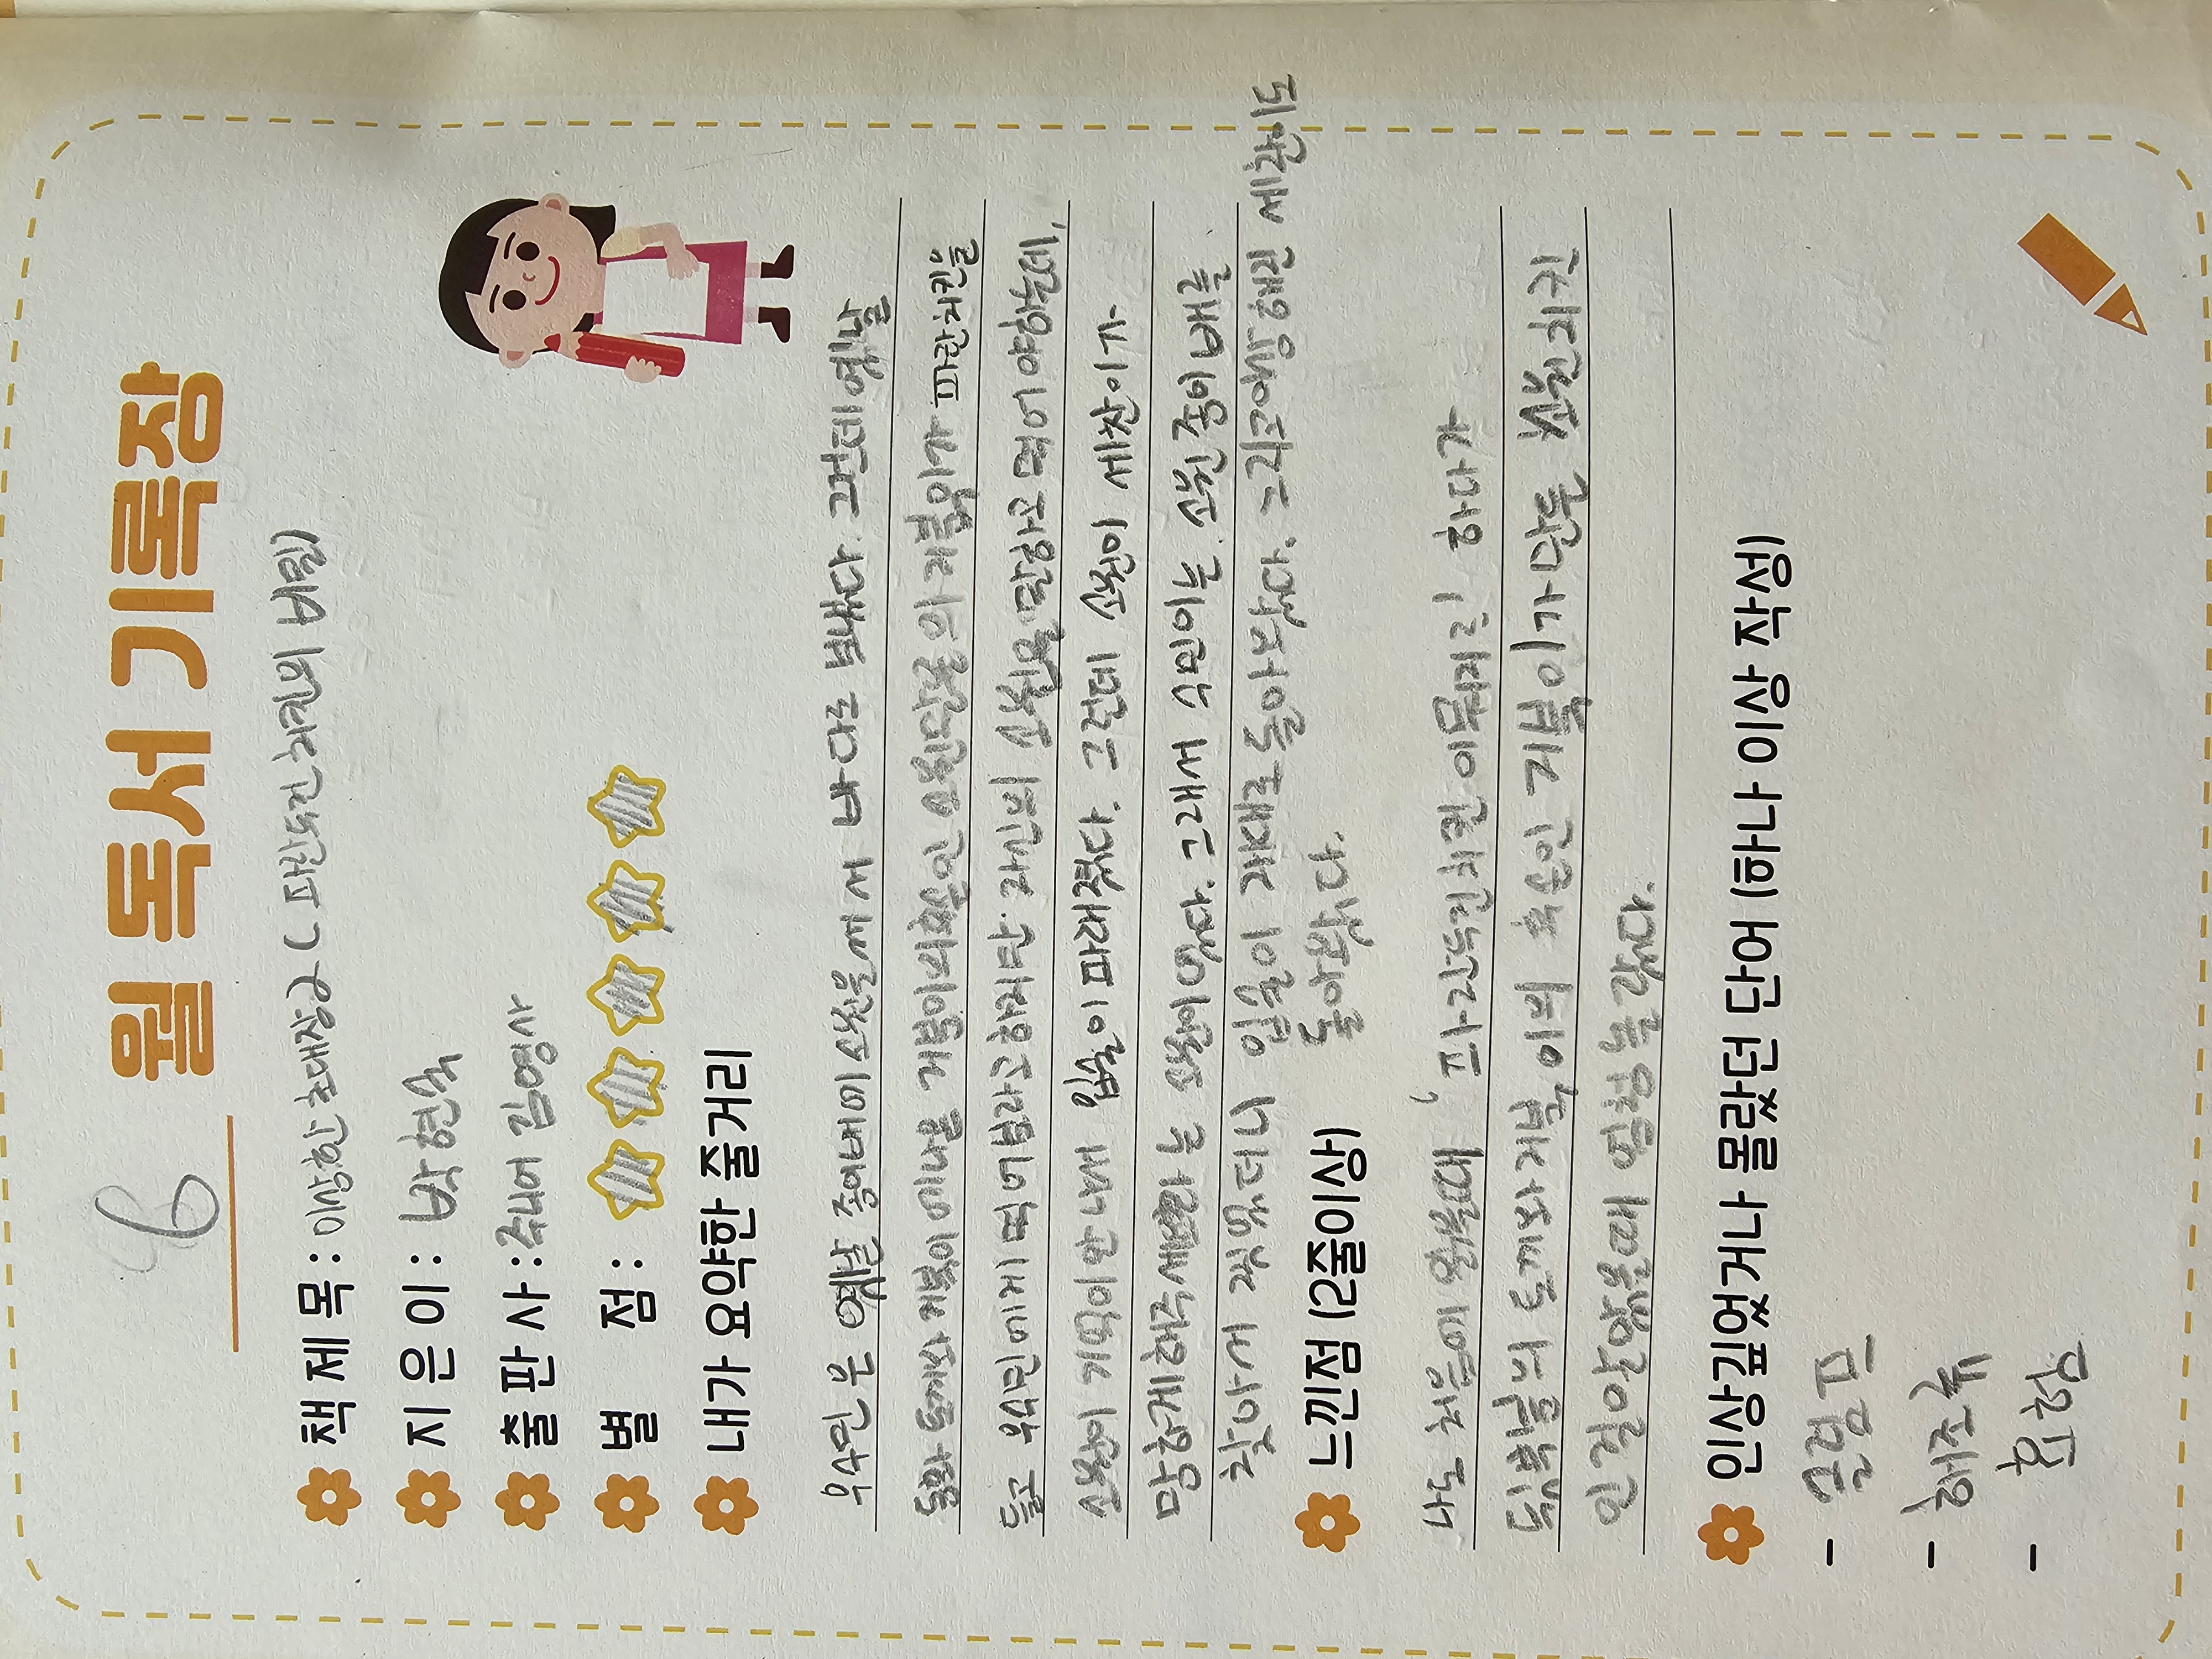 6 월 독서 기록장
책 제 목 : 이상한 초대장2 ( 파란두건 치킨의 비밀)
지 은 이 : 박현숙
출 판 사 : 주니어 김영사
별 점 :
내가 요약한 줄거리
우수민은 옛날 종이배에 소원을 써서 바다로 보냈다. 그런데 옛날
동화 토끼와 거북이에 나온 거북이의 후손인 소원 의 거북이가 파란치킨을
들고 우수민에게 먹어보라고 하지만 자신의 소원을 말하고 먹어야하는데,
소원이 기억이 안 나서 입술이 파래졌다. 그런데 소원이 세찬이가
망하게 해주세요라는 소원이었다. 그래서 수민이는 소원 종이배를
찾아서 찢었더니 입술이 제대로 돌아왔다. 그리고 이상해진 세찬이도
느낀점 (2줄이상) 돌아왔다.
나도 처음에 읽을때 '파란두건치킨이 뭐지?' 하다가
토끼와 거북이의 후손인 거북이가 만든 소원치킨
인 걸 알았을때 엄청 놀랐다.
인상깊었거나 몰랐던 단어 (하나 이상 작성)
- 슬럼프
- 해조류
- 효험